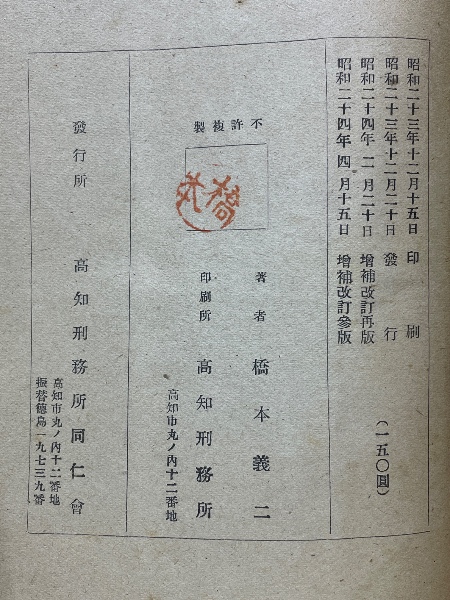 昭和二十三年十二月十五日 印刷
昭和二十三年十二月二十日 發行
昭和二十四年二月二十日 增補改訂再版
昭和二十四年四月十五日 增補改訂參版
(一五〇圓)
不許複製
橋
著者 橋本義二
印刷所 高知刑務所
高知市丸ノ內十二番地
發行所 高知刑務所同仁會
高知市丸ノ內十二番地
振替德島一九七三九番